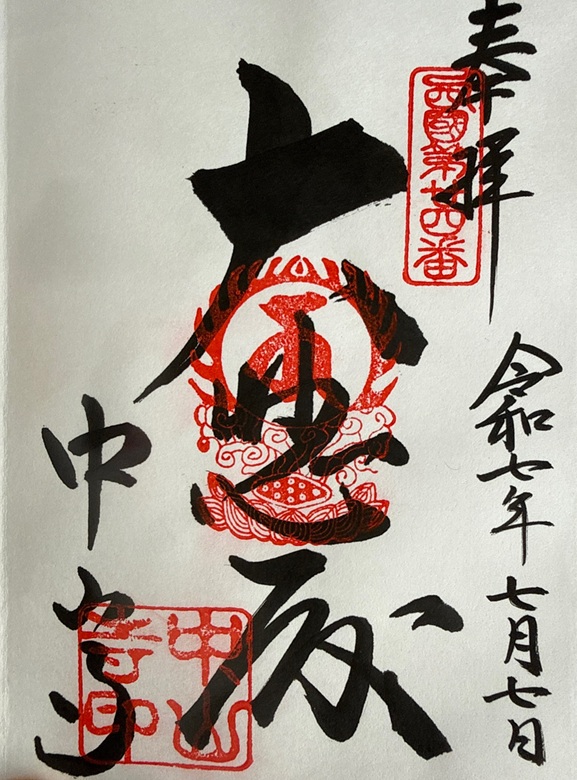 奉拝
西國第廿四番
令和七年七月七日
大悲殿
中山寺
中山寺印